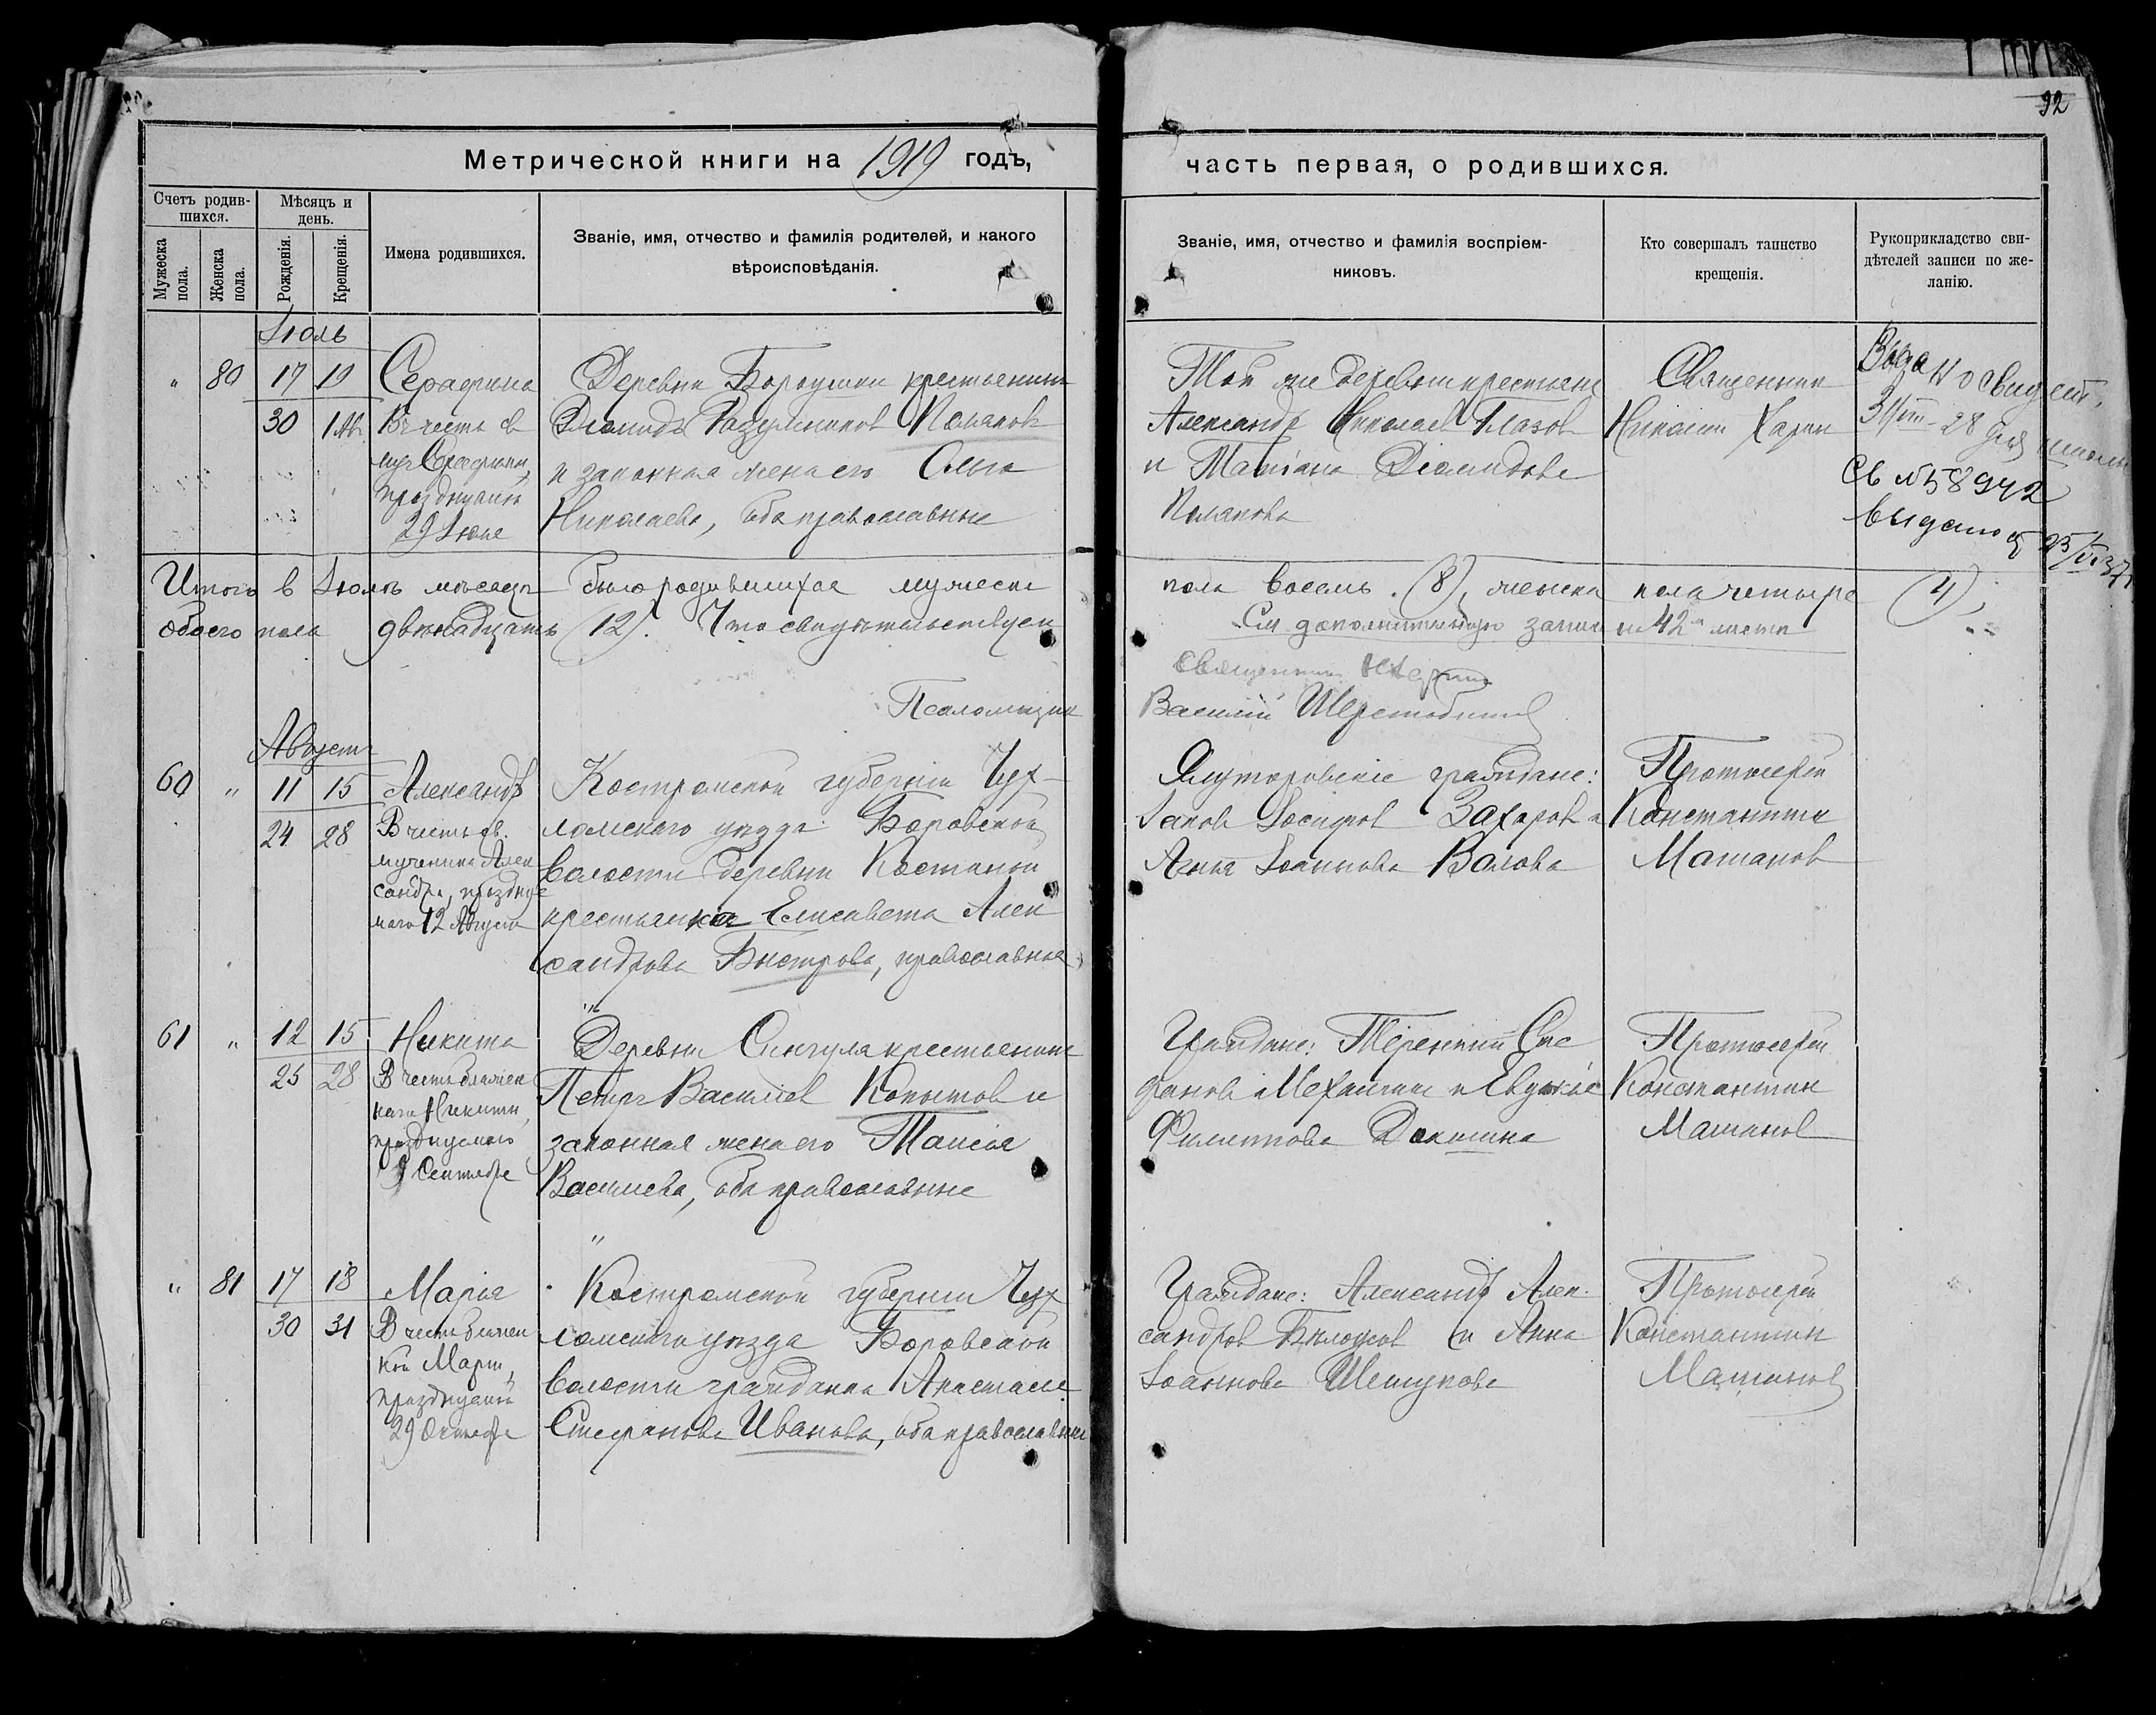 92
Метрической книги на 1919 годъ,
часть первая, о родившихся.
Счетъ родив-
шихся.
Мужеска
пола.
Женска
пола.
Мѣсяцъ и
день.
Рожденія.
Крещенія.
Имена родившихся.
Званіе, имя, отчество и фамилія родителей, и какого
вѣроисповѣданія.
Званіе, имя, отчество и фамилія воспріем-
никовъ.
Кто совершалъ таинство
крещенія.
Рукоприкладство сви-
дѣтелей записи по же-
ланію.
Іюль
" 80 17 19
30 1 Ав.
Серафима
В честь св
муч Серафимы,
празднуемой
29 Іюля
Деревни крестьянин
Диомидъ Разумников Поляков
и законная жена его Ольга
Николаева, оба православные
Той же деревни крестьяне
Александр Николаев Глазов
и Татіана Діомидова
Полякова
Священник
Николай
свидет.
28 для школы
Св № 58942
выдано
Итого в Іюле месяце было родившихся мужеска
пола восемь (8), женска пола четыре (4),
обоего пола двенадцать (12). Что свидетельствуем
См дополнительную запись на 42 листе
Священник
Псаломщик
Василий Шерстобитов
Август
60 " 11 15
24 28
Александр
В честь св.
мученика Алек
сандра, праздну
маго 12 Августа
Костромской губернии Чух-
ломского уезда Боровской
волости деревни Костиной
крестьянка Елисавета Алек
сандрова Быстрова, православная
Ялуторовские граждане:
Іаков Іосифов Захаров и
Анна Іоаннова Валова
Протоиерей
Константин
Матанов
61 " 12 15
25 28
Никита
В честь блажен
наго Никиты,
празднуемого
9 Сентября
Деревни Сингуля крестьянин
Петр Васильев Копытов и
законная жена его Таисия
Васильева, оба православные
Граждане: Терентий Сте
фанов Мехагин и Евдокия
Филиппова Докшина
Протоиерей
Константин
Матанов
" 81 17 18
30 31
Марія
В честь блажен
ной Марии,
празднуемой
29 Октября
Костромской губернии Чух
ломского уезда Боровской
волости гражданка Анастасия
Стефанова Иванова, оба православные
Граждане: Александр Алек-
сандров Белоусов и Анна
Іоаннова Шешукова
Протоиерей
Константин
Матанов